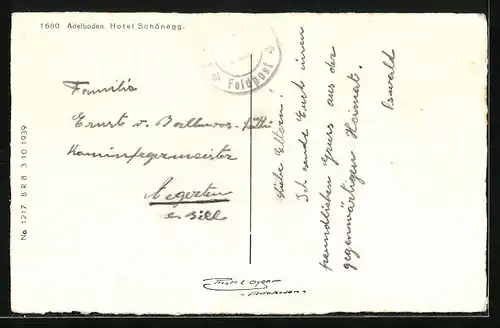 1680 Adelboden. Hotel Schönegg.
Feldpost
Familie
Ernst v. Ballmoos-
Kaminfegermeister
Aegerten
b. Biel
Liebe Eltern!
Ich sende Euch einen
freundlichen Gruss aus der
gegenwärtigen Heimat.
Oswald
No 1217 B R B 3 10 1939
Adelboden